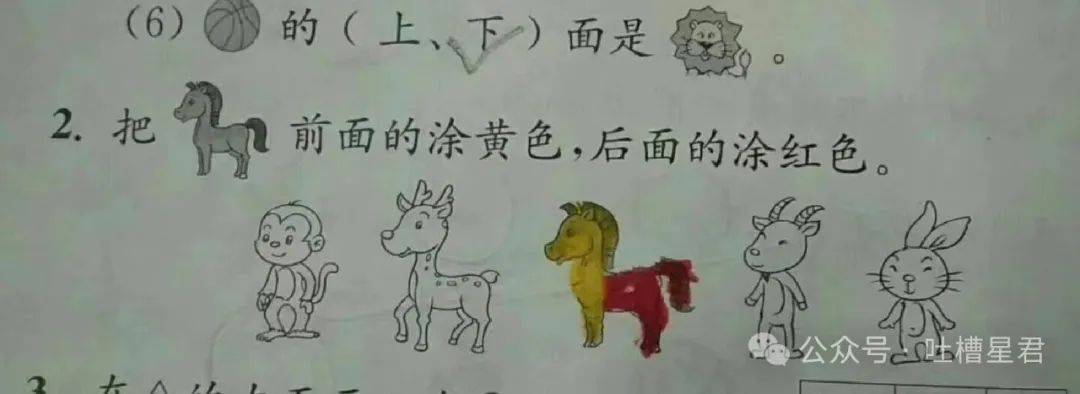 (6) 的(上、下)面是 。
2. 把 前面的涂黄色,后面的涂红色。
公众号·吐槽星君
3.